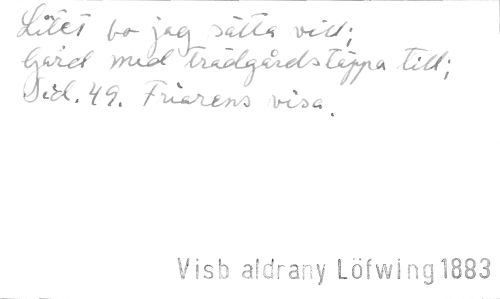 Litet bo jag sätta vill;
Gård med trädgårdstäppa till;
Sid. 49. Friarens visa.
Visb aldrany Löfwing 1883